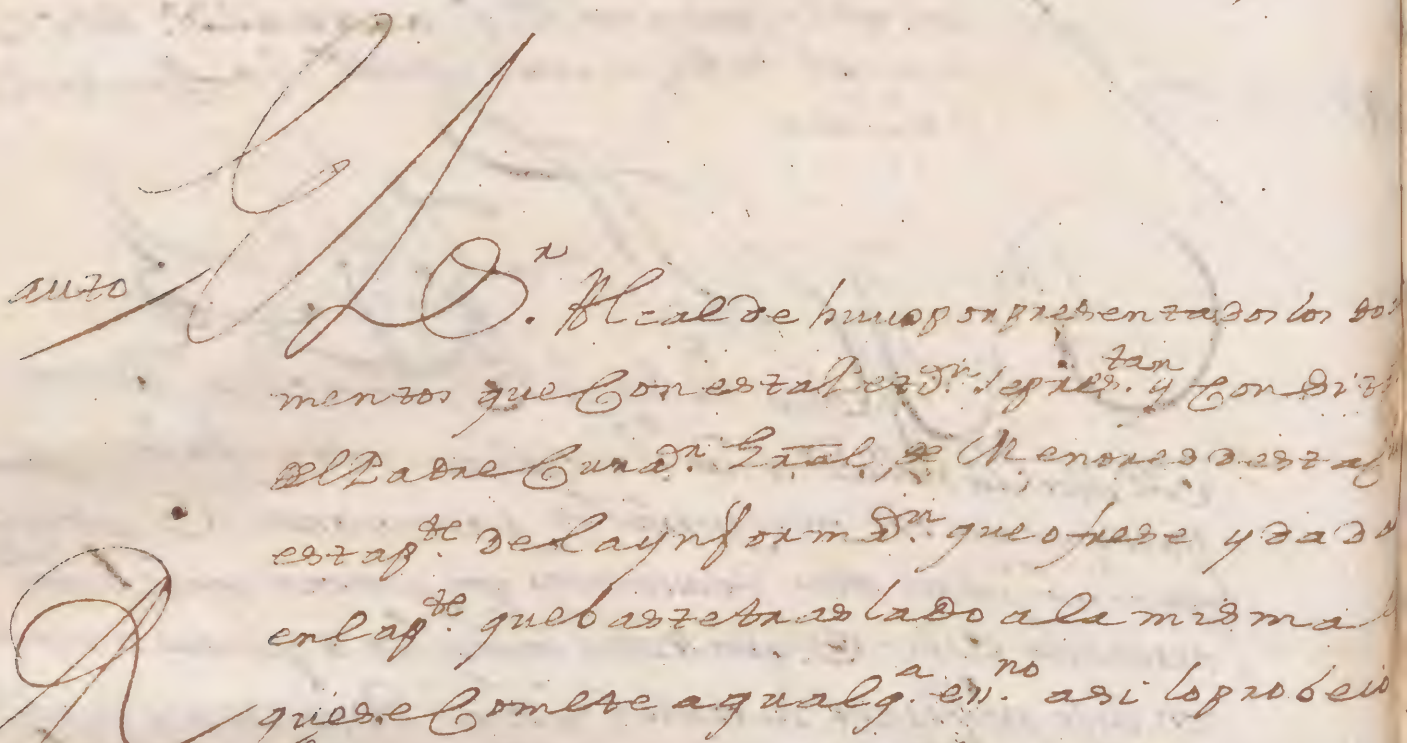 auto
D.n Alcalde huuo por presentados los do
mentos que Con esta petiz.n se pres.tan y Con
del Padre Curad.r Gral, de Menores desta
esta p.te de la ynformaz.n que ofrese y dado
en la p.te que baste traslado a la misma
que se Comete a qualq.a es.no asi lo probeio